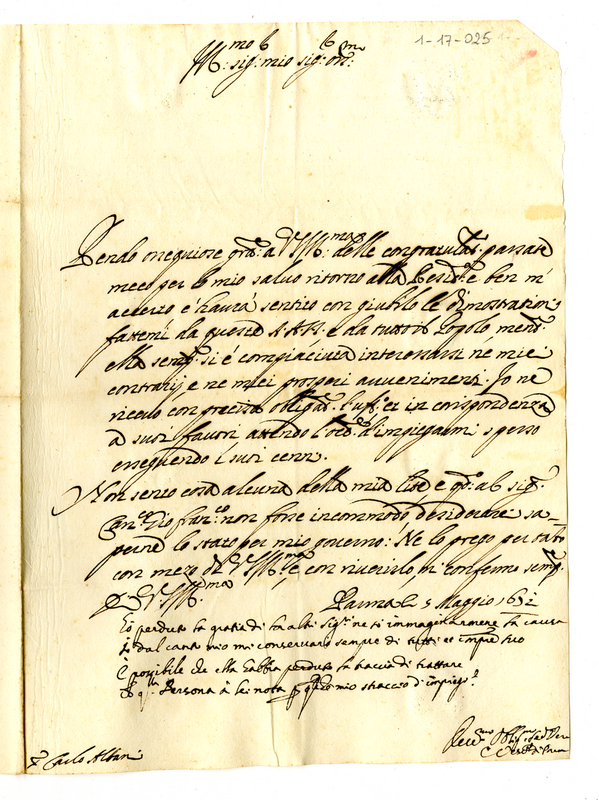 1-17-025
sig: mio sig:
Rendo ossequiose gra: a V. S. Ill.ma delle congratulat. passate
meco per lo mio salvo ritorno alla e ben m'
accerto c'havrà sentito con giubilo le dimostrationi
fattemi da queste A.A. e da tutto il Popolo, ment.
ella semp. si è compiaciuta interessarsi ne miei
contrarij, e ne miei prosperi avvenimenti. Io ne
ricevo con precisa obligat. l'uff. et in corrispondenza
a suoi favori attendo d'impiegarmi spesso
esseguendo i suoi cenni.
Non sento cosa alcuna della mia lite e q.do al sig.
Can.co Gio fran.co non fosse incommodo desiderarei sa-
perne lo stato per mio governo: Ne lo prego per tanto
con mezo di V. S. Ill.ma e con riverirlo mi confermo semp.
Di V. S. Ill.ma
Parma li 5 Maggio 1692
Ho perduto la gratia di ne ti immaginarmene la causa
dal canto mio mi conservarò sempre di tutti et
È possibile che ella habbia perduto la traccia di trattare
Persona à lei nota mio straccio d'impiego.
Carlo Albani